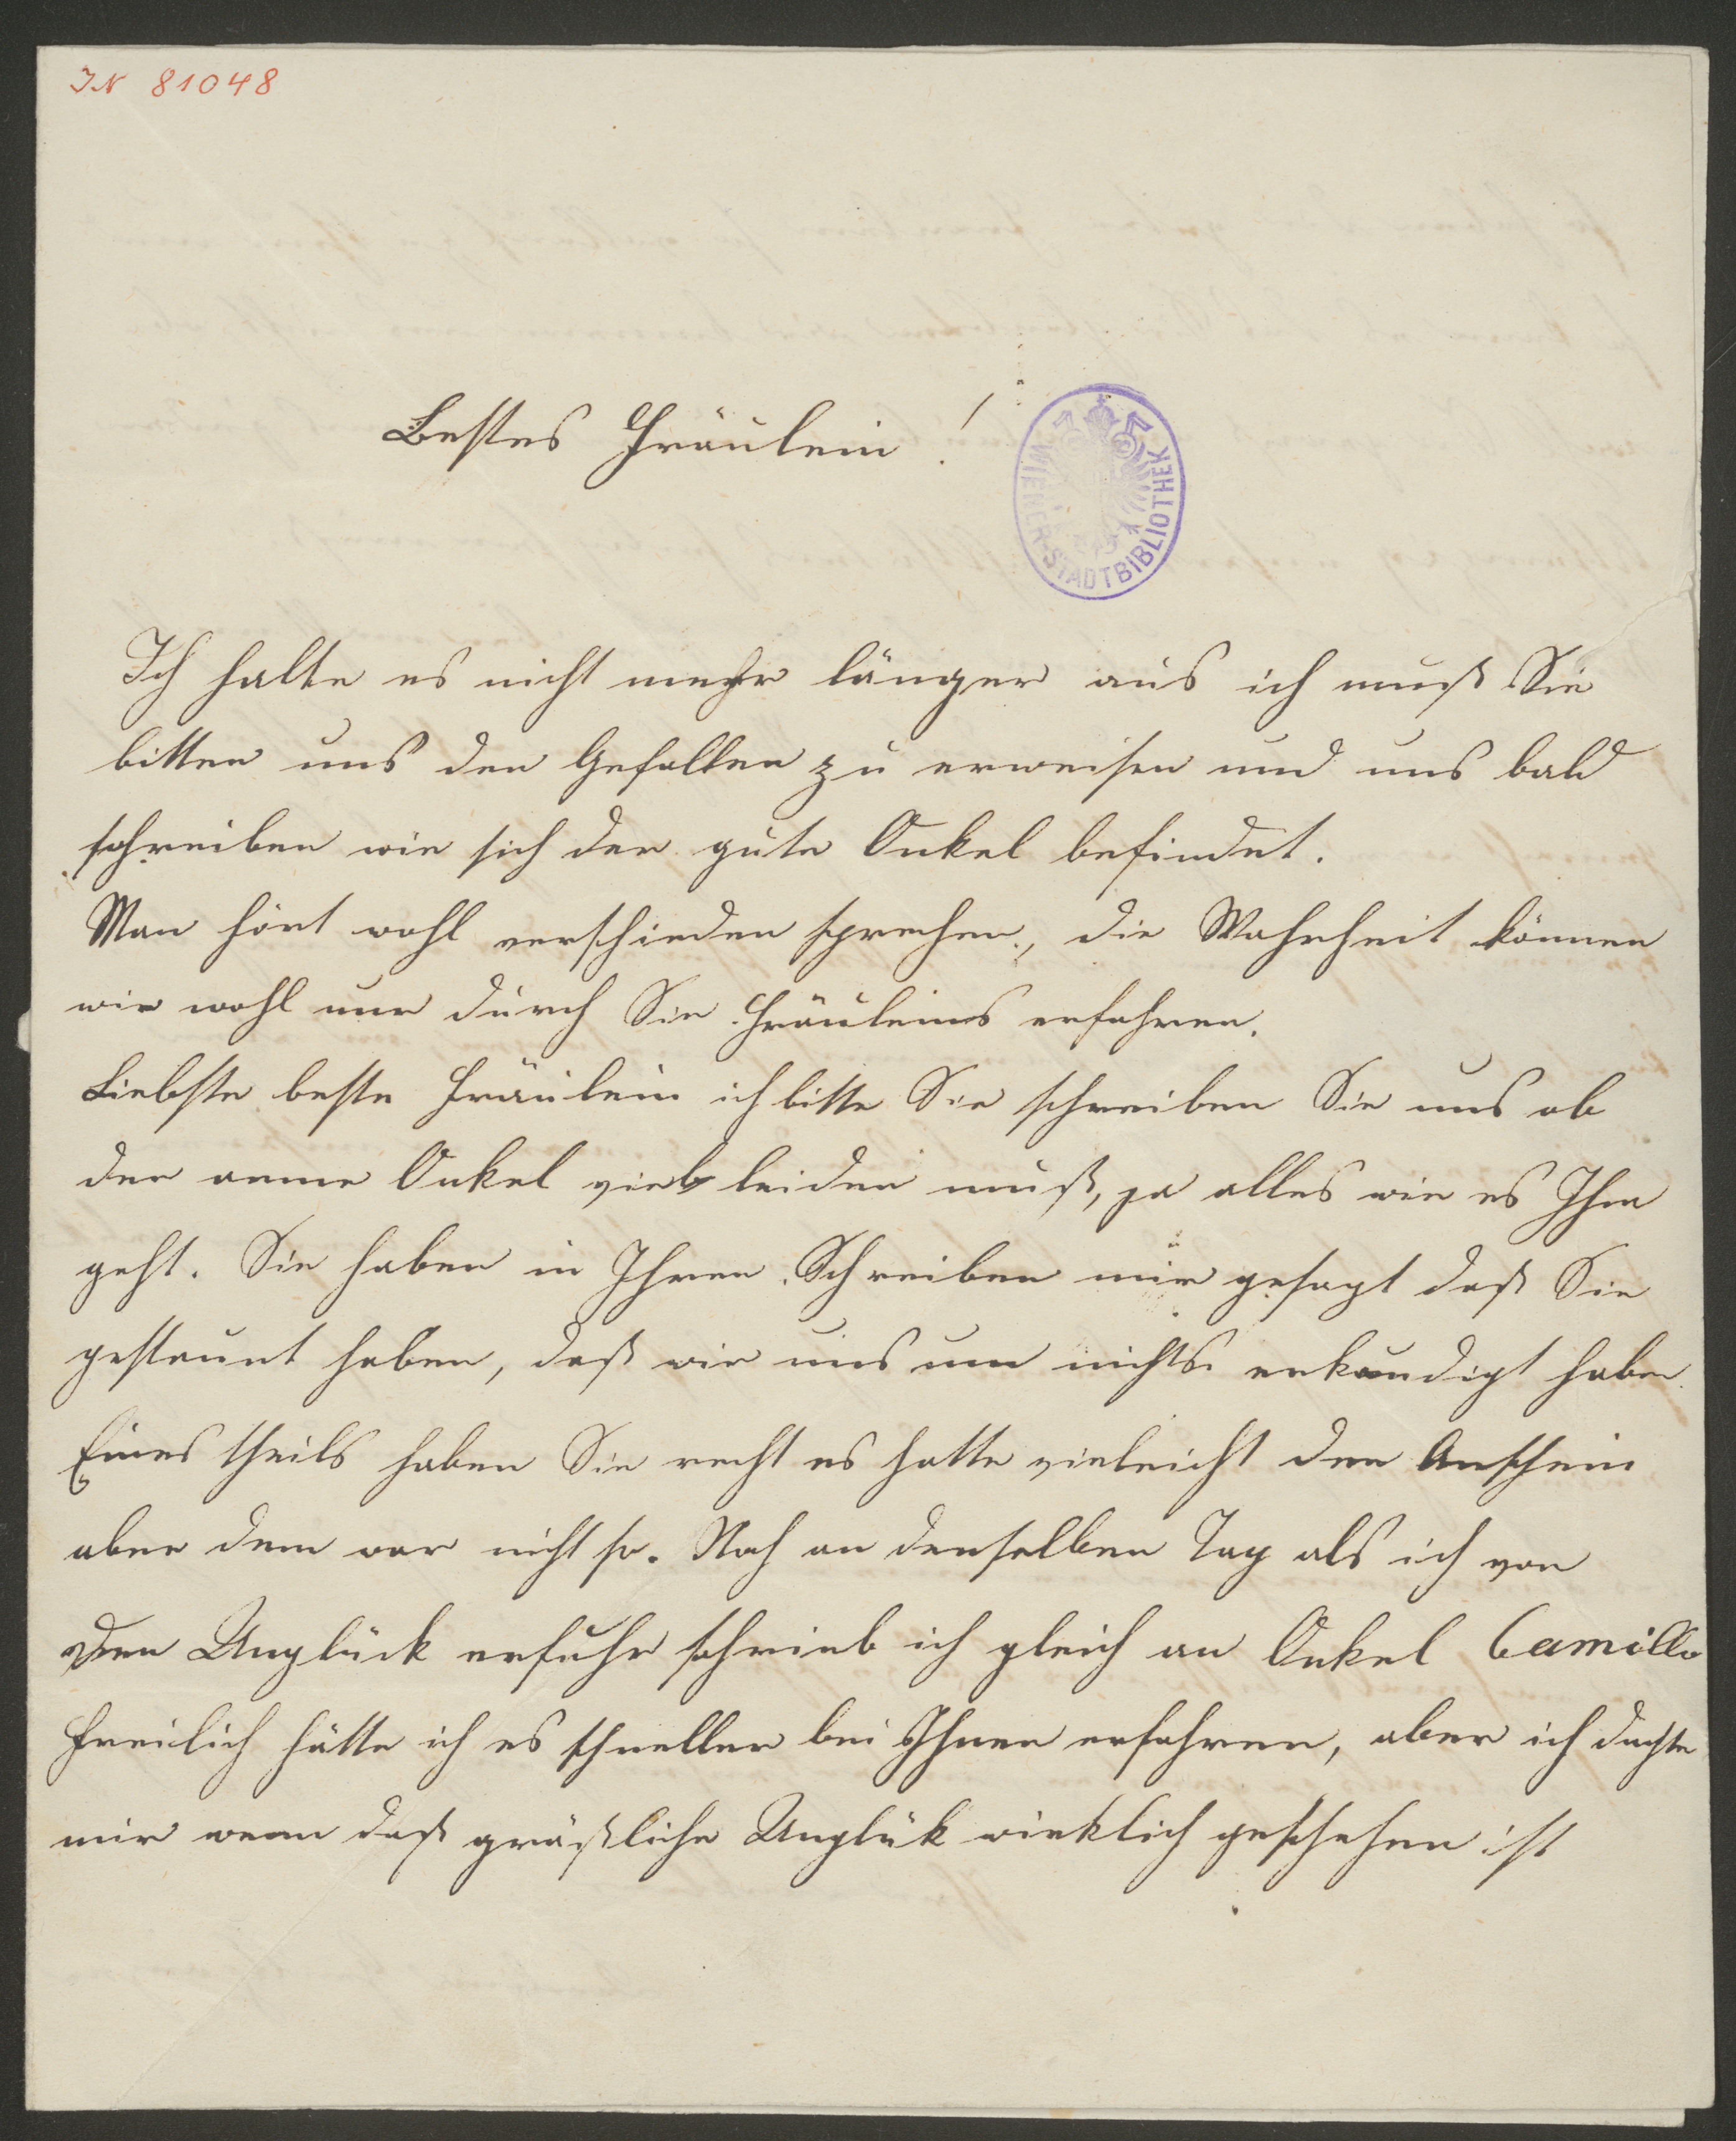 IN 81048
Bestes Fräulein!
WIENER-STADTBIBLIOTHEK
Ich halte es nicht mehr länger aus ich muß Sie
bitten uns den Gefallen zu erweisen und uns bald
schreiben wie sich der gute Onkel befindet.
Man hört wohl verschieden sprechen, die Wahrheit können
wir wohl nur durch Sie Fräuleins erfahren.
Liebste beste Fräulein ich bitte Sie schreiben Sie uns ob
der arme Onkel viel leiden muß, ja alles wie es Ihm
geht. Sie haben in Ihren Schreiben mir gesagt daß Sie
gestaunt haben, daß wir uns um nichts erkundigt haben.
Eines theils haben Sie recht es hatte vieleicht den Anschein
aber dem war nicht so. Noch an denselben Tag als ich von
den Unglück erfuhr schrieb ich gleich an Onkel Camillo
freilich hätte ich es schneller bei Ihnen erfahren, aber ich dachte
mir wenn daß gräßliche Unglük wirklich geschehen ist